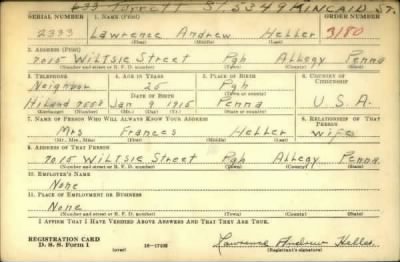 633 Torrett St. 5349 KINCAID ST.
SERIAL NUMBER 1. NAME (Print) ORDER NUMBER
2333 Lawrence Andrew Heller 3180
(First) (Middle) (Last)
2. ADDRESS (Print)
7015 WILTSIE Street Pgh Allegy Penna
(Number and street or R. F. D. number) (Town) (County) (State)
3. TELEPHONE 4. AGE IN YEARS 5. PLACE OF BIRTH 6. COUNTRY OF CITIZENSHIP
Neighbor 25 Pgh
(Town or county)
DATE OF BIRTH
Hiland Jan 9 1915 Penna U.S.A.
(Exchange) (Number) (Mo.) (Day) (Yr.) (State or country)
7. NAME OF PERSON WHO WILL ALWAYS KNOW YOUR ADDRESS 8. RELATIONSHIP OF THAT PERSON
Mrs Frances Heller wife
(Mr., Mrs., Miss) (First) (Middle) (Last)
9. ADDRESS OF THAT PERSON
7015 WILTSIE Street Pgh Allegy Penna
(Number and street or R. F. D. number) (Town) (County) (State)
10. EMPLOYER'S NAME
None
11. PLACE OF EMPLOYMENT OR BUSINESS
None
(Number and street or R. F. D. number) (Town) (County) (State)
I AFFIRM THAT I HAVE VERIFIED ABOVE ANSWERS AND THAT THEY ARE TRUE.
REGISTRATION CARD
D. S. S. Form 1 (over) 16-17105 Lawrence Andrew Heller
(Registrant's signature)